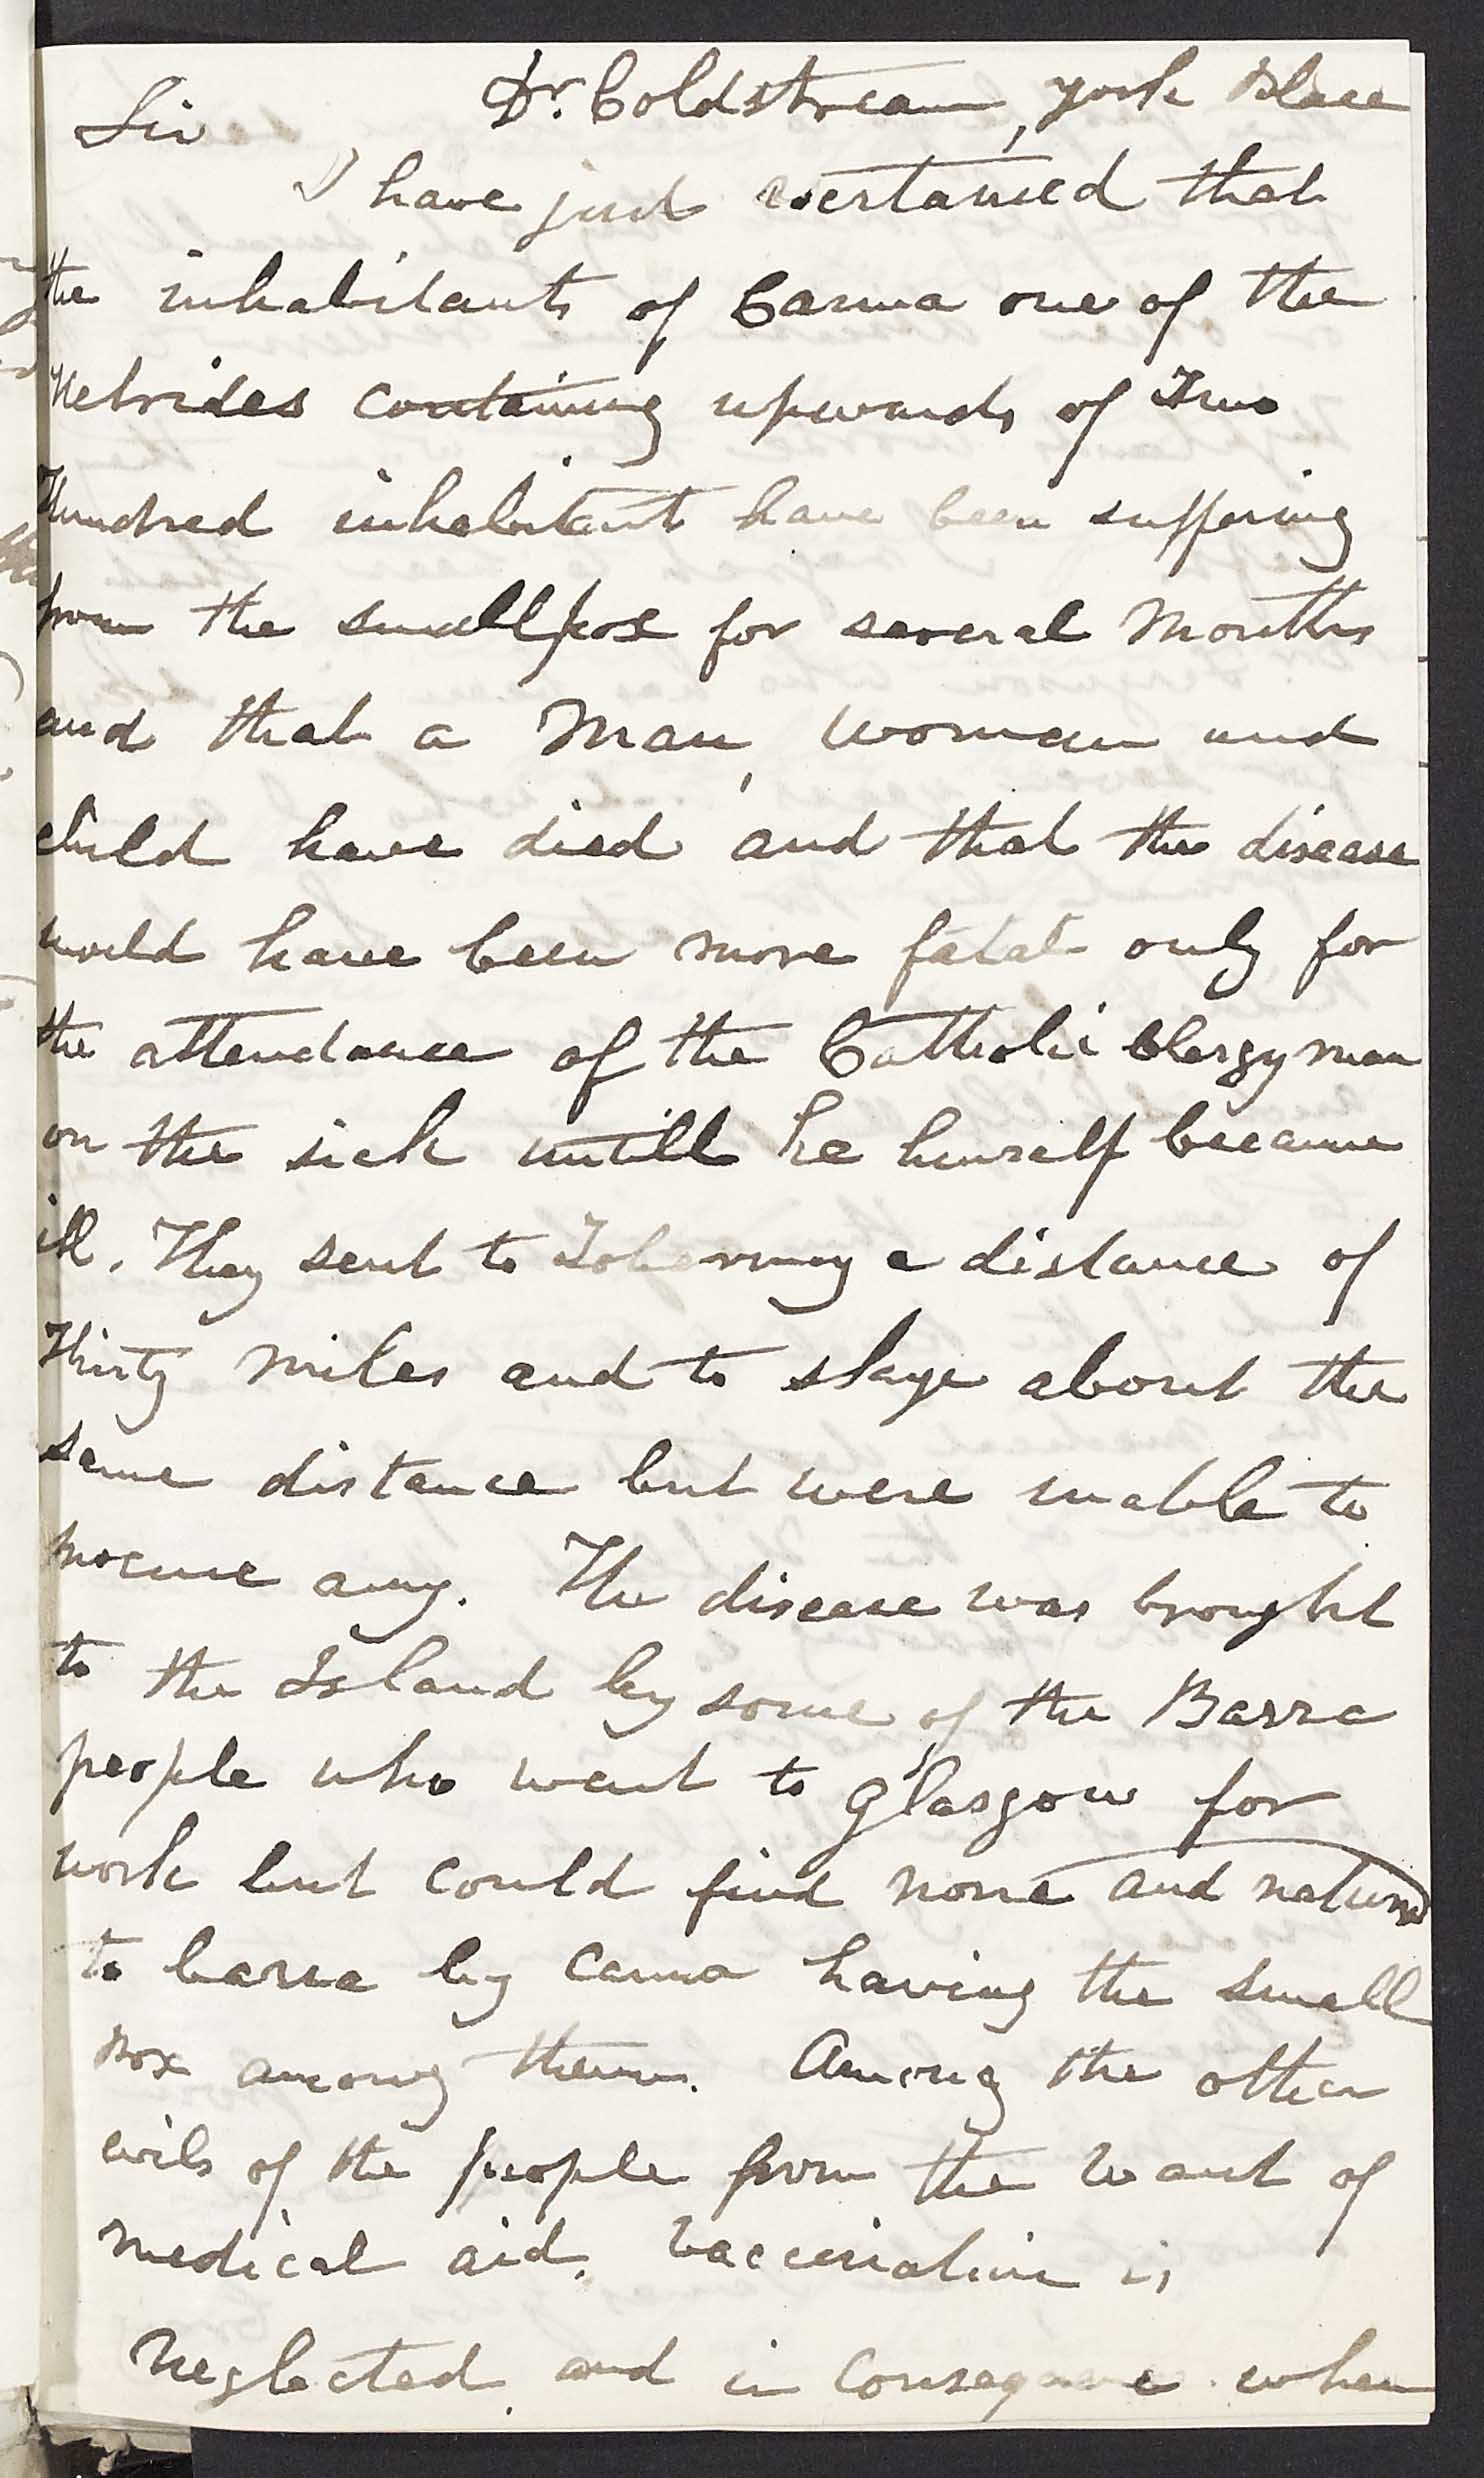 Dr. Coldstream, York Place
Sir
I have just acertained that
the inhabitants of Canna one of the
Hebrides containing upwards of Two
Hundred inhabitent have been suffering
from the smallpox for several Months
and that a Man, woman and
child have died and that the disease
would have been more fatal only for
the attendance of the Catholic Clergyman
on the sick untill he himself became
ill. They sent to Tobermory a distance of
Thirty miles and to skye about the
same distance but were unable to
procure any. The disease was brought
to the Island by some of the Barra
people who went to Glasgow for
work but could find none and returned
to barra by Canna having the small
pox among them. Among the other
evils of the people from the want of
medical aid. Vaccination is
neglected and in consequence when